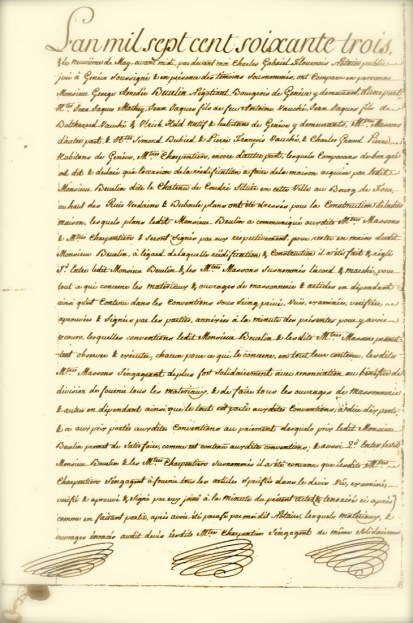 L'an mil sept cent soixante trois.
& le neuvieme de May, avant midi, par devant moi Charles Gabriel Flournois Notaire public
juré à Genève soussigné & en présence des témoins susnommés, ont comparu en personne
Monsieur George Amedée Beulin Négotiant Bourgeois de Genève y demeurant, d'une part
Jean Jaques Jean Jaques fils de feu Antoine Vauché, Jean Jaques fils de
Vauché & Hold natif & habitans de Genève y demeurants, Maçons
d'autre part, & Simond Dubied & Pierre François Vauché, & Charles Grand Pierre
habitans de Genève, Mtres Charpentiers, encore d'autre part, lesquels Comparans de bon gré
ont dit & declaré que l'occasion de la réédification à faire de la maison acquise par ledit
Monsieur Beulin dite le Chateau de Coudré située en cette Ville au Bourg de Four,
au haut des Ruës Verdaine & plans ont été dressés pour la Construction de ladite
maison, lesquels plans ledit Monsieur Beulin a communiqué auxdits Mtres Massons
& Mtres Charpentiers & seront signés par eux respectivement, pour rester en mains dudit
Monsieur Beulin, à l'égard de laquelle réédification & Construction il a été fait & réglé
1°. Entre ledit Monsieur Beulin & les Mtres Massons susnommés l'acord & marché, pour
tout ce qui concerne les matériaux & ouvrages de massonnerie & articles en dépendant
ainsi qu'est contenu dans les Conventions sous seing privé, vües, examinées, vérifiées,
aprouvées & signées par les parties, annexées à la minute des présentes pour y avoir
recours, lesquelles conventions ledit Monsieur Beulin & lesdits Mtres Massons promettent
observer & exécuter, chacun pour ce qui le concerne, en tout leur contenu, lesdits
Mtres Massons s'engageant de plus fort solidairement avec renonciation au bénéfice de
division de fournir tous les matériaux, & de faire tous les ouvrages de massonnerie
& autres en dépendant ainsi que le tout est porté auxdites Conventions,
& aux prix portés auxdites Conventions au payement desquels prix ledit Monsieur
Beulin promet de satisfaire, comme est contenu auxdites conventions; & aussi 2°. Entre ledit
Monsieur Beulin & les Mtres Charpentiers susnommés il a été convenu que lesdits Mtres
Charpentiers s'engagent à fournir tous les articles spécifiés dans le devis vû, examiné,
vérifié & aprouvé & signé par eux joint à la minute du présent acte & ténorisé ci après
comme en faisant partie, après avoir été parafé par moi dit Notaire, lesquels matériaux, &
ouvrages énoncés audit devis lesdits Mtres Charpentiers s'engagent de même solidairement